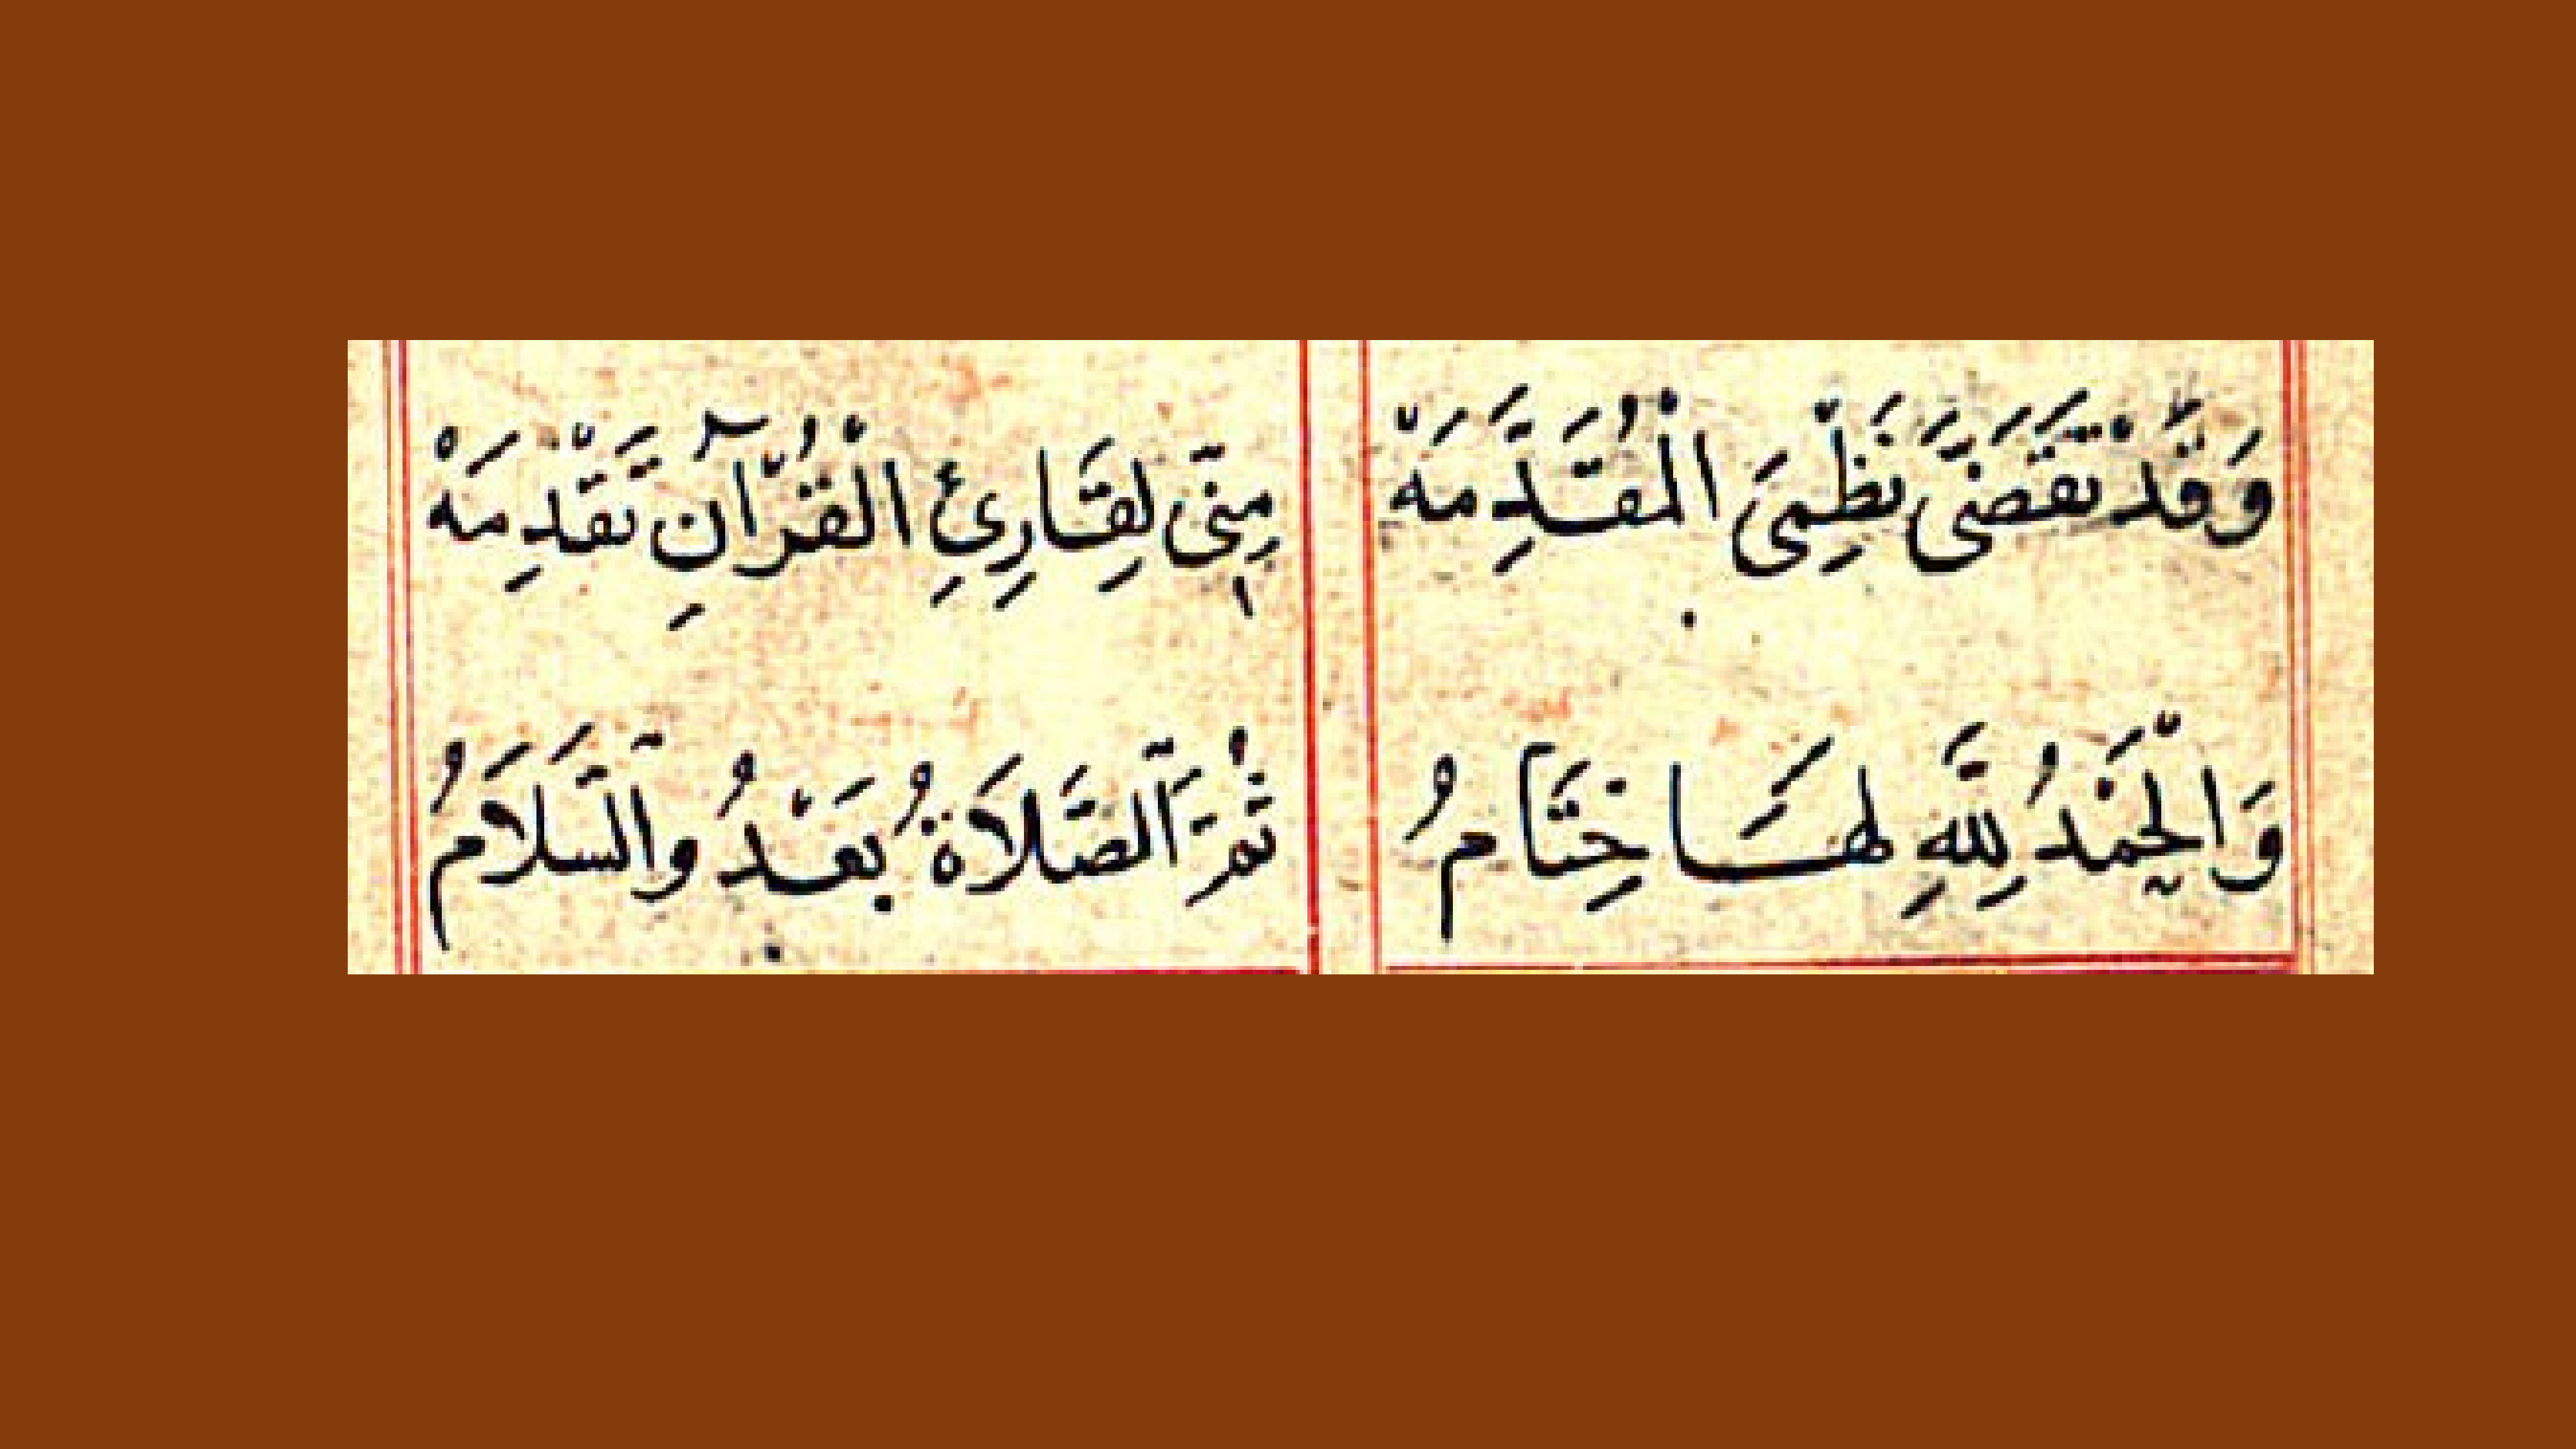 وَقَدْ تَقَضَّى نَظْمِىَ الْمُقَدِّمَهْ مِنِّى لِقَارِئِ الْقُرْآنِ تَقْدِمَهْ
وَالْحَمْدُ لِلَّهِ لَهَا خِتَامُ ثُمَّ الصَّلَاةُ بَعْدُ وَالسَّلَامُ